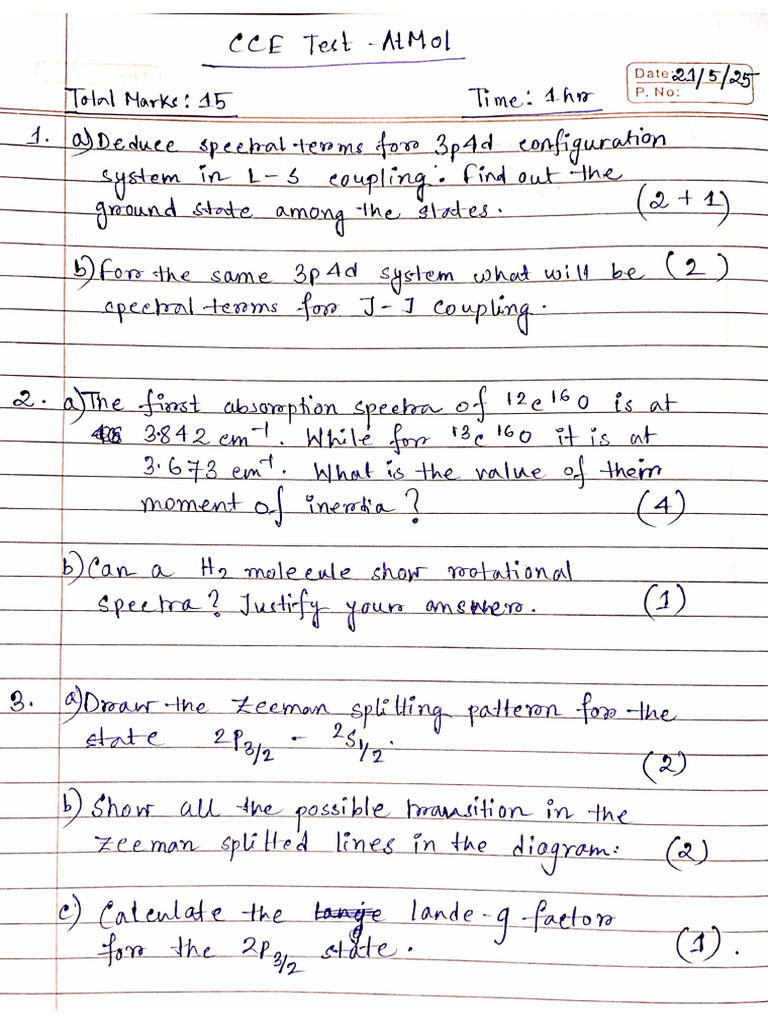 CCE Test - AtMol
Date: 21/5/25
P. No:
Total Marks: 15 Time: 1 hr
1. a) Deduce spectral terms for 3p4d configuration
system in L-S coupling. Find out the
ground state among the states. (2 + 1)
b) For the same 3p4d system what will be (2)
spectral terms for J-J coupling.
2. a) The first absorption spectra of ¹²C¹⁶O is at
3.842 cm⁻¹. While for ¹³C¹⁶O it is at
3.673 cm⁻¹. What is the value of their
moment of inertia? (4)
b) Can a H₂ molecule show rotational
spectra? Justify your answer. (1)
3. a) Draw the Zeeman splitting pattern for the
state 2P₃/₂ - ²S₁/₂.
(2)
b) Show all the possible transition in the
Zeeman splitted lines in the diagram: (2)
c) Calculate the lande-g-factor
for the 2P₃/₂ state. (1).